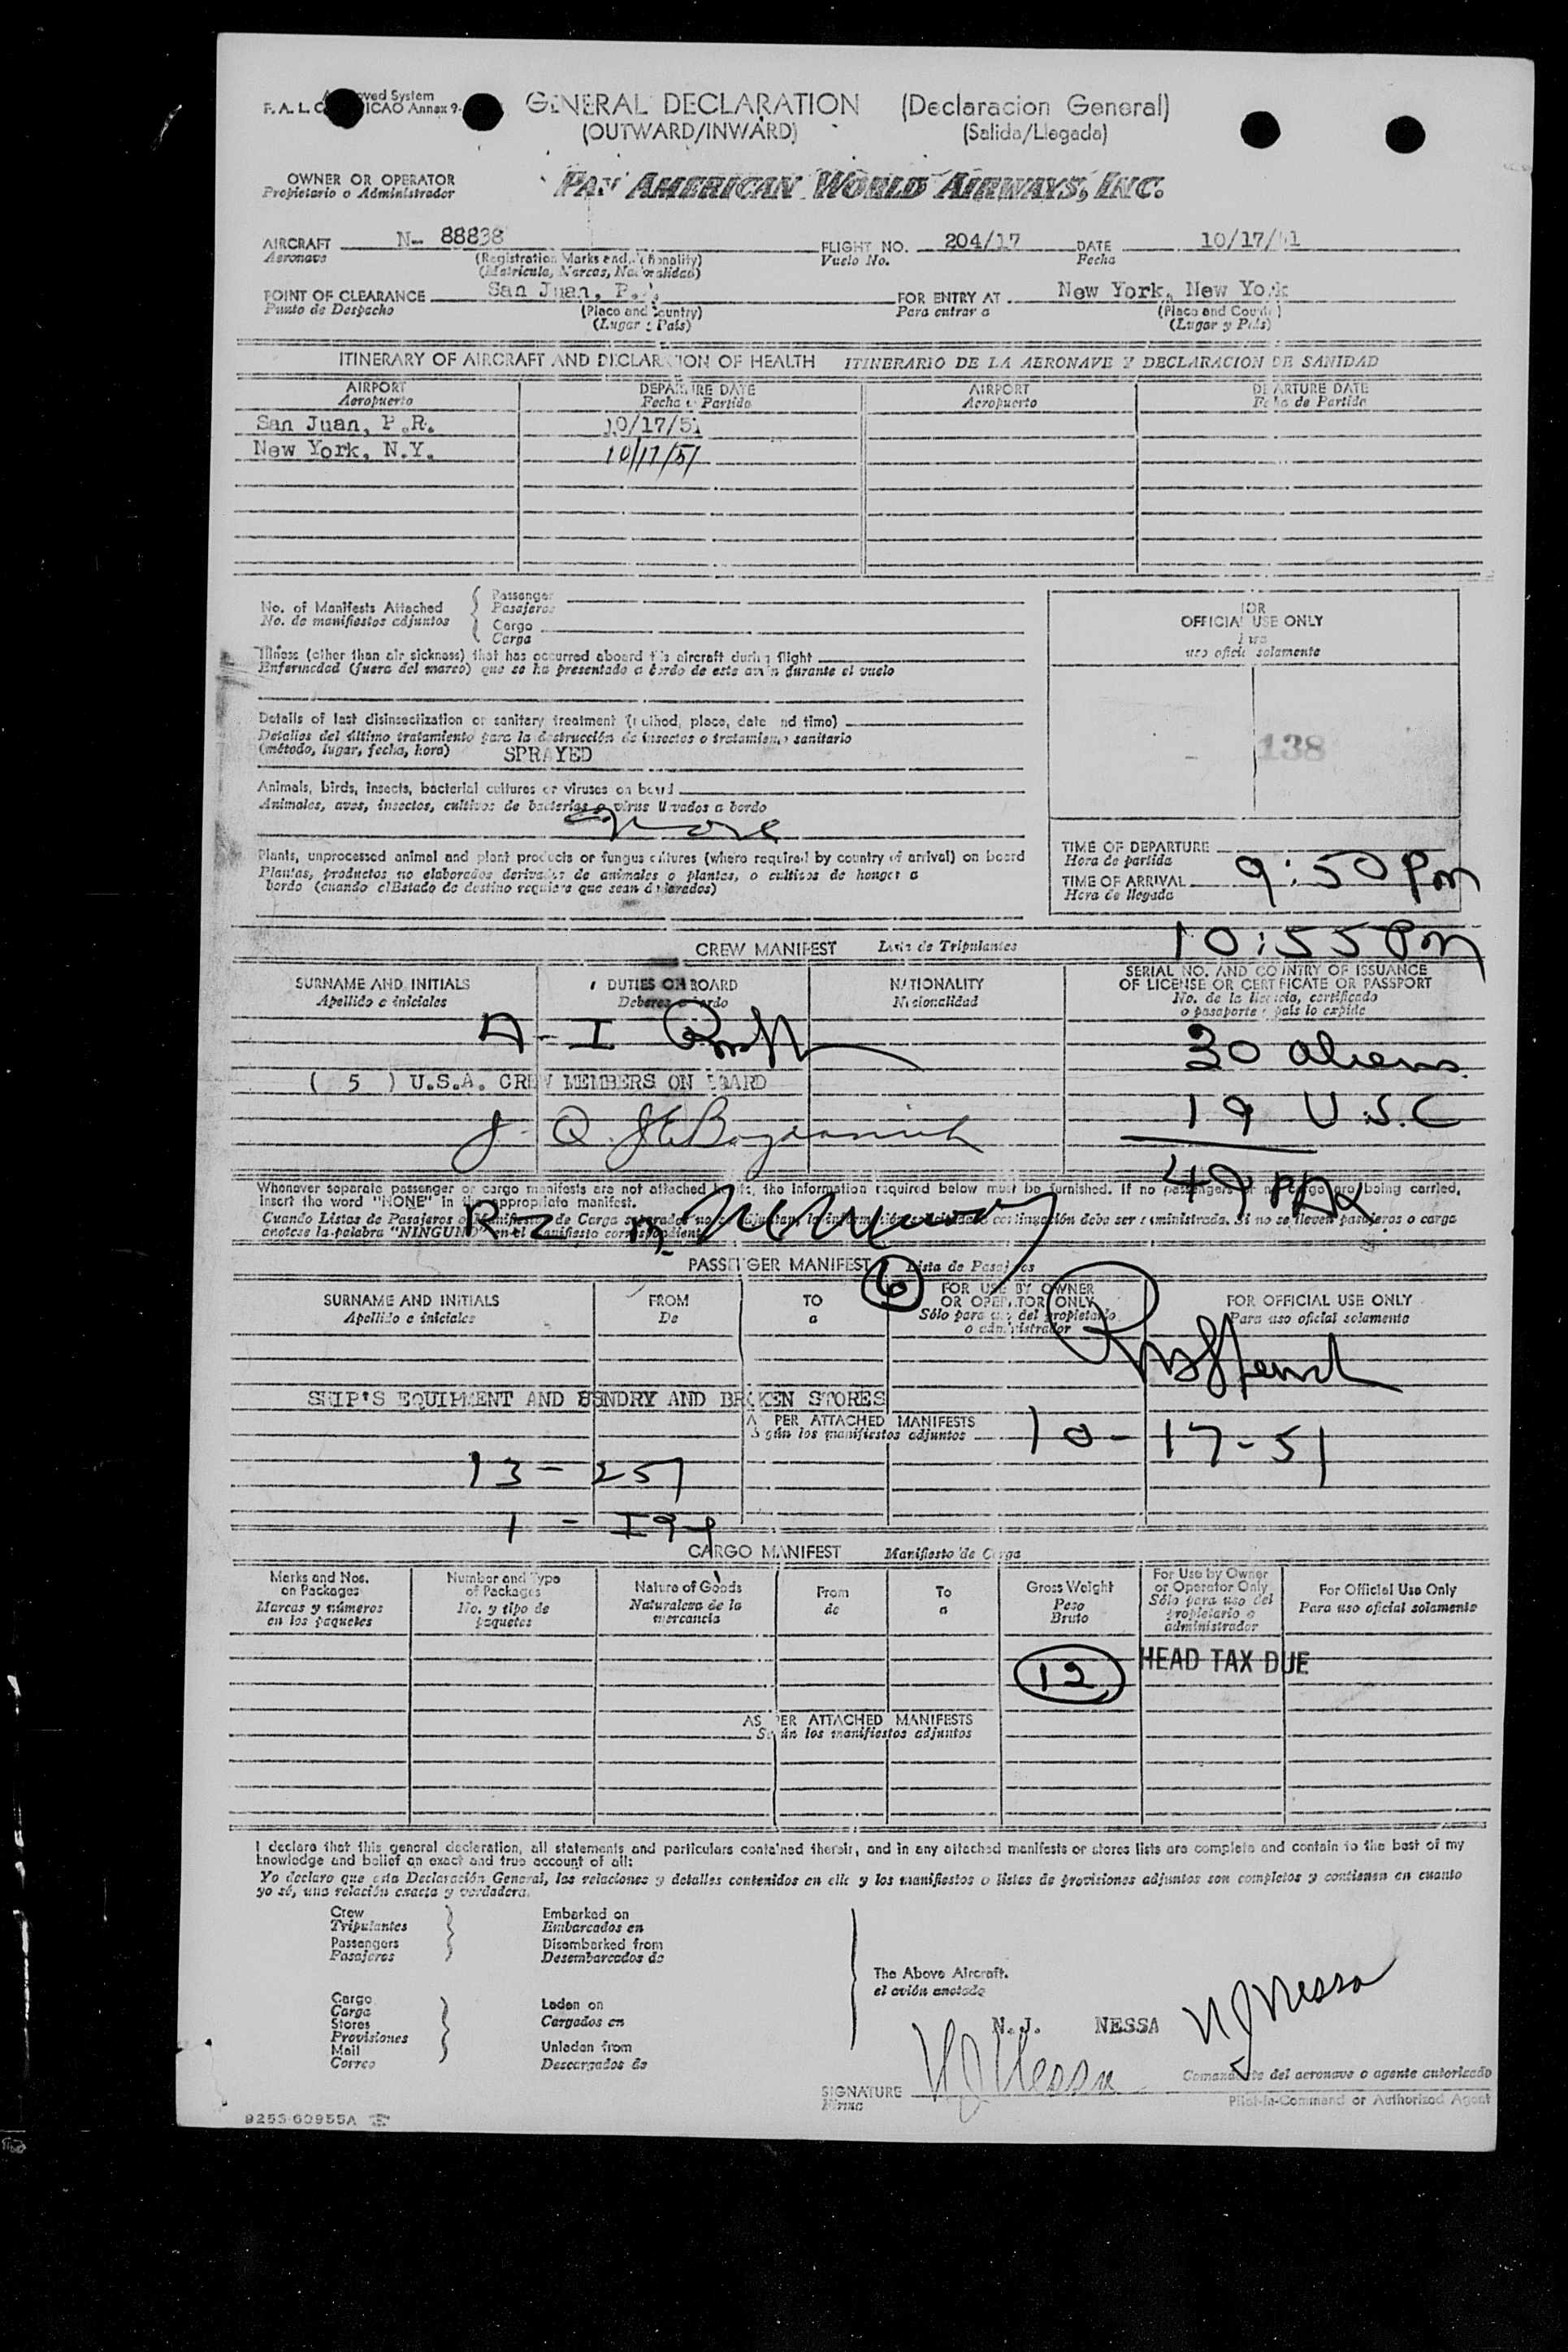 F. A. L. ICAO Annex 9-
GENERAL DECLARATION (Declaracion General)
(OUTWARD/INWARD) (Salida/Llegada)
OWNER OR OPERATOR
Propietario o Administrador
PAN AMERICAN WORLD AIRWAYS, INC.
AIRCRAFT N- 88838 FLIGHT NO. 204/17 DATE 10/17/51
Aeronave (Registration Marks and Nationality) Vuelo No. Fecha
(Matricula, Marcas, Nacionalidad)
POINT OF CLEARANCE San Juan, P. FOR ENTRY AT New York, New York
Punto de Despacho (Place and Country) Para entrar a (Place and Country)
(Lugar y País) (Lugar y País)
ITINERARY OF AIRCRAFT AND DECLARATION OF HEALTH ITINERARIO DE LA AERONAVE Y DECLARACION DE SANIDAD
AIRPORT DEPARTURE DATE AIRPORT DEPARTURE DATE
Aeropuerto Fecha de Partida Aeropuerto Fecha de Partida
San Juan, P.R. 10/17/51
New York, N.Y. 10/17/51
No. of Manifests Attached Passenger
No. de manifiestos adjuntos Pasajeros
Cargo
Carga
FOR
OFFICIAL USE ONLY
Para
uso oficial solamente
Illness (other than air sickness) that has occurred aboard this aircraft during flight
Enfermedad (fuera del mareo) que se ha presentado a bordo de este avión durante el vuelo
Details of last disinsectization or sanitary treatment (method, place, date and time)
Detalles del último tratamiento para la destrucción de insectos o tratamiento sanitario
(método, lugar, fecha, hora) SPRAYED
138
Animals, birds, insects, bacterial cultures or viruses on board
Animales, aves, insectos, cultivos de bacterias o virus llevados a bordo
none
Plants, unprocessed animal and plant products or fungus cultures (where required by country of arrival) on board
Plantas, productos no elaborados derivados de animales o plantas, o cultivos de hongos a
bordo (cuando el Estado de destino requiere que sean declarados)
TIME OF DEPARTURE
Hora de partida
TIME OF ARRIVAL 9:50 Pm
Hora de llegada
10:55 Pm
CREW MANIFEST Lista de Tripulantes
SURNAME AND INITIALS DUTIES ON BOARD NATIONALITY SERIAL NO. AND COUNTRY OF ISSUANCE
OF LICENSE OR CERTIFICATE OR PASSPORT
Apellido e iniciales Deberes a bordo Nacionalidad No. de la licencia, certificado
o pasaporte y país lo expide
A - I
30 aliens
( 5 ) U.S.A. CREW MEMBERS ON BOARD
19 U.S.C
J. Q.
49 PAX
Whenever separate passenger or cargo manifests are not attached hereto, the information required below must be furnished. If no passengers or no cargo are being carried,
insert the word "NONE" in the appropriate manifest.
Cuando Listas de Pasajeros o Manifiestos de Carga separados no se adjuntan, la información solicitada a continuación debe ser suministrada. Si no se lleven pasajeros o carga
anotese la palabra "NINGUNO" en el manifiesto correspondiente
PASSENGER MANIFEST 6 Lista de Pasajeros
SURNAME AND INITIALS FROM TO FOR USE BY OWNER
OR OPERATOR ONLY FOR OFFICIAL USE ONLY
Apellido e iniciales De a Sólo para uso del propietario
o administrador Para uso oficial solamente
SHIP'S EQUIPMENT AND SUNDRY AND BROKEN STORES
AS PER ATTACHED MANIFESTS
Según los manifiestos adjuntos
10-17-51
13 - 257
1 - I94
CARGO MANIFEST Manifiesto de Carga
Marks and Nos.
on Packages
Marcas y números
en los paquetes
Number and Type
of Packages
No. y tipo de
paquetes
Nature of Goods
Naturaleza de la
mercancia
From
de
To
a
Gross Weight
Peso
Bruto
For Use by Owner
or Operator Only
Sólo para uso del
propietario o
administrador
For Official Use Only
Para uso oficial solamente
12 HEAD TAX DUE
AS PER ATTACHED MANIFESTS
Según los manifiestos adjuntos
I declare that this general declaration, all statements and particulars contained therein, and in any attached manifests or stores lists are complete and contain to the best of my
knowledge and belief an exact and true account of all:
Yo declaro que esta Declaración General, las relaciones y detalles contenidos en ella y los manifiestos o listas de provisiones adjuntos son completos y contienen en cuanto
yo sé, una relación exacta y verdadera.
Crew Embarked on
Tripulantes Embarcados en
Passengers Disembarked from
Pasajeros Desembarcados de
The Above Aircraft.
el avión anotado
Cargo Laden on
Carga Cargados en
Stores
Provisiones
Mail Unladen from
Correo Descargados de
N.J. NESSA
N J Nessa
SIGNATURE N J Nessa
Firma
Comandante del aeronave o agente autorizado
Pilot-in-Command or Authorized Agent
9253-60955A